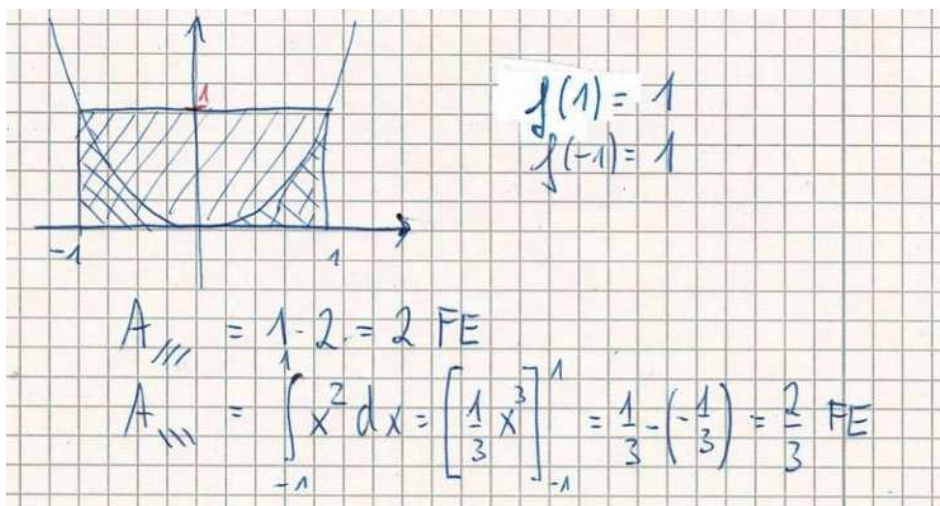 1
f(1) = 1
f(-1) = 1
-1 1
A/// = 1·2 = 2 FE
A\\\ = ∫₋₁¹ x² dx = [1/3 x³]₋₁¹ = 1/3 - (-1/3) = 2/3 FE